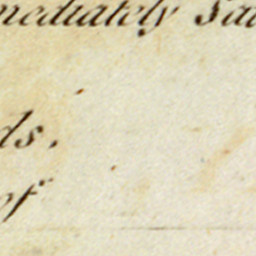 mediately
ds.
of